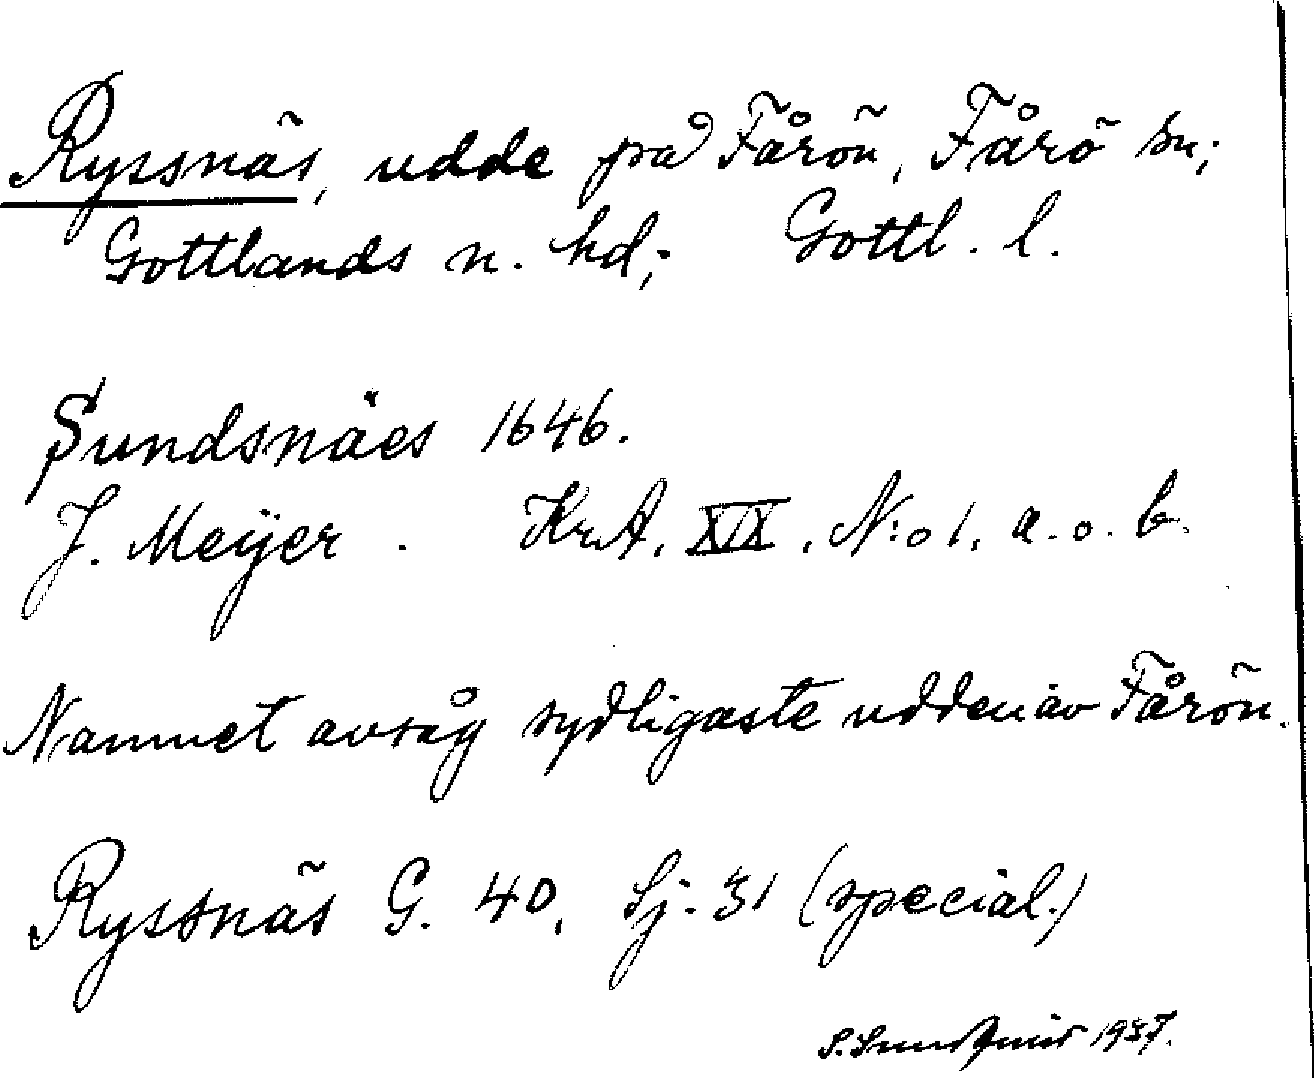 Ryssnäs, udde på Fårön, Fårö sn;
Gottlands n. hd; Gottl. l.
Sundsnäes 1646.
J. Meijer. KrA, XIX, N:o 1, a. o. b.
Namnet avsåg sydligaste udden av Fårön.
Ryssnäs G. 40, Sj. 31 (special.)
S. 1937.